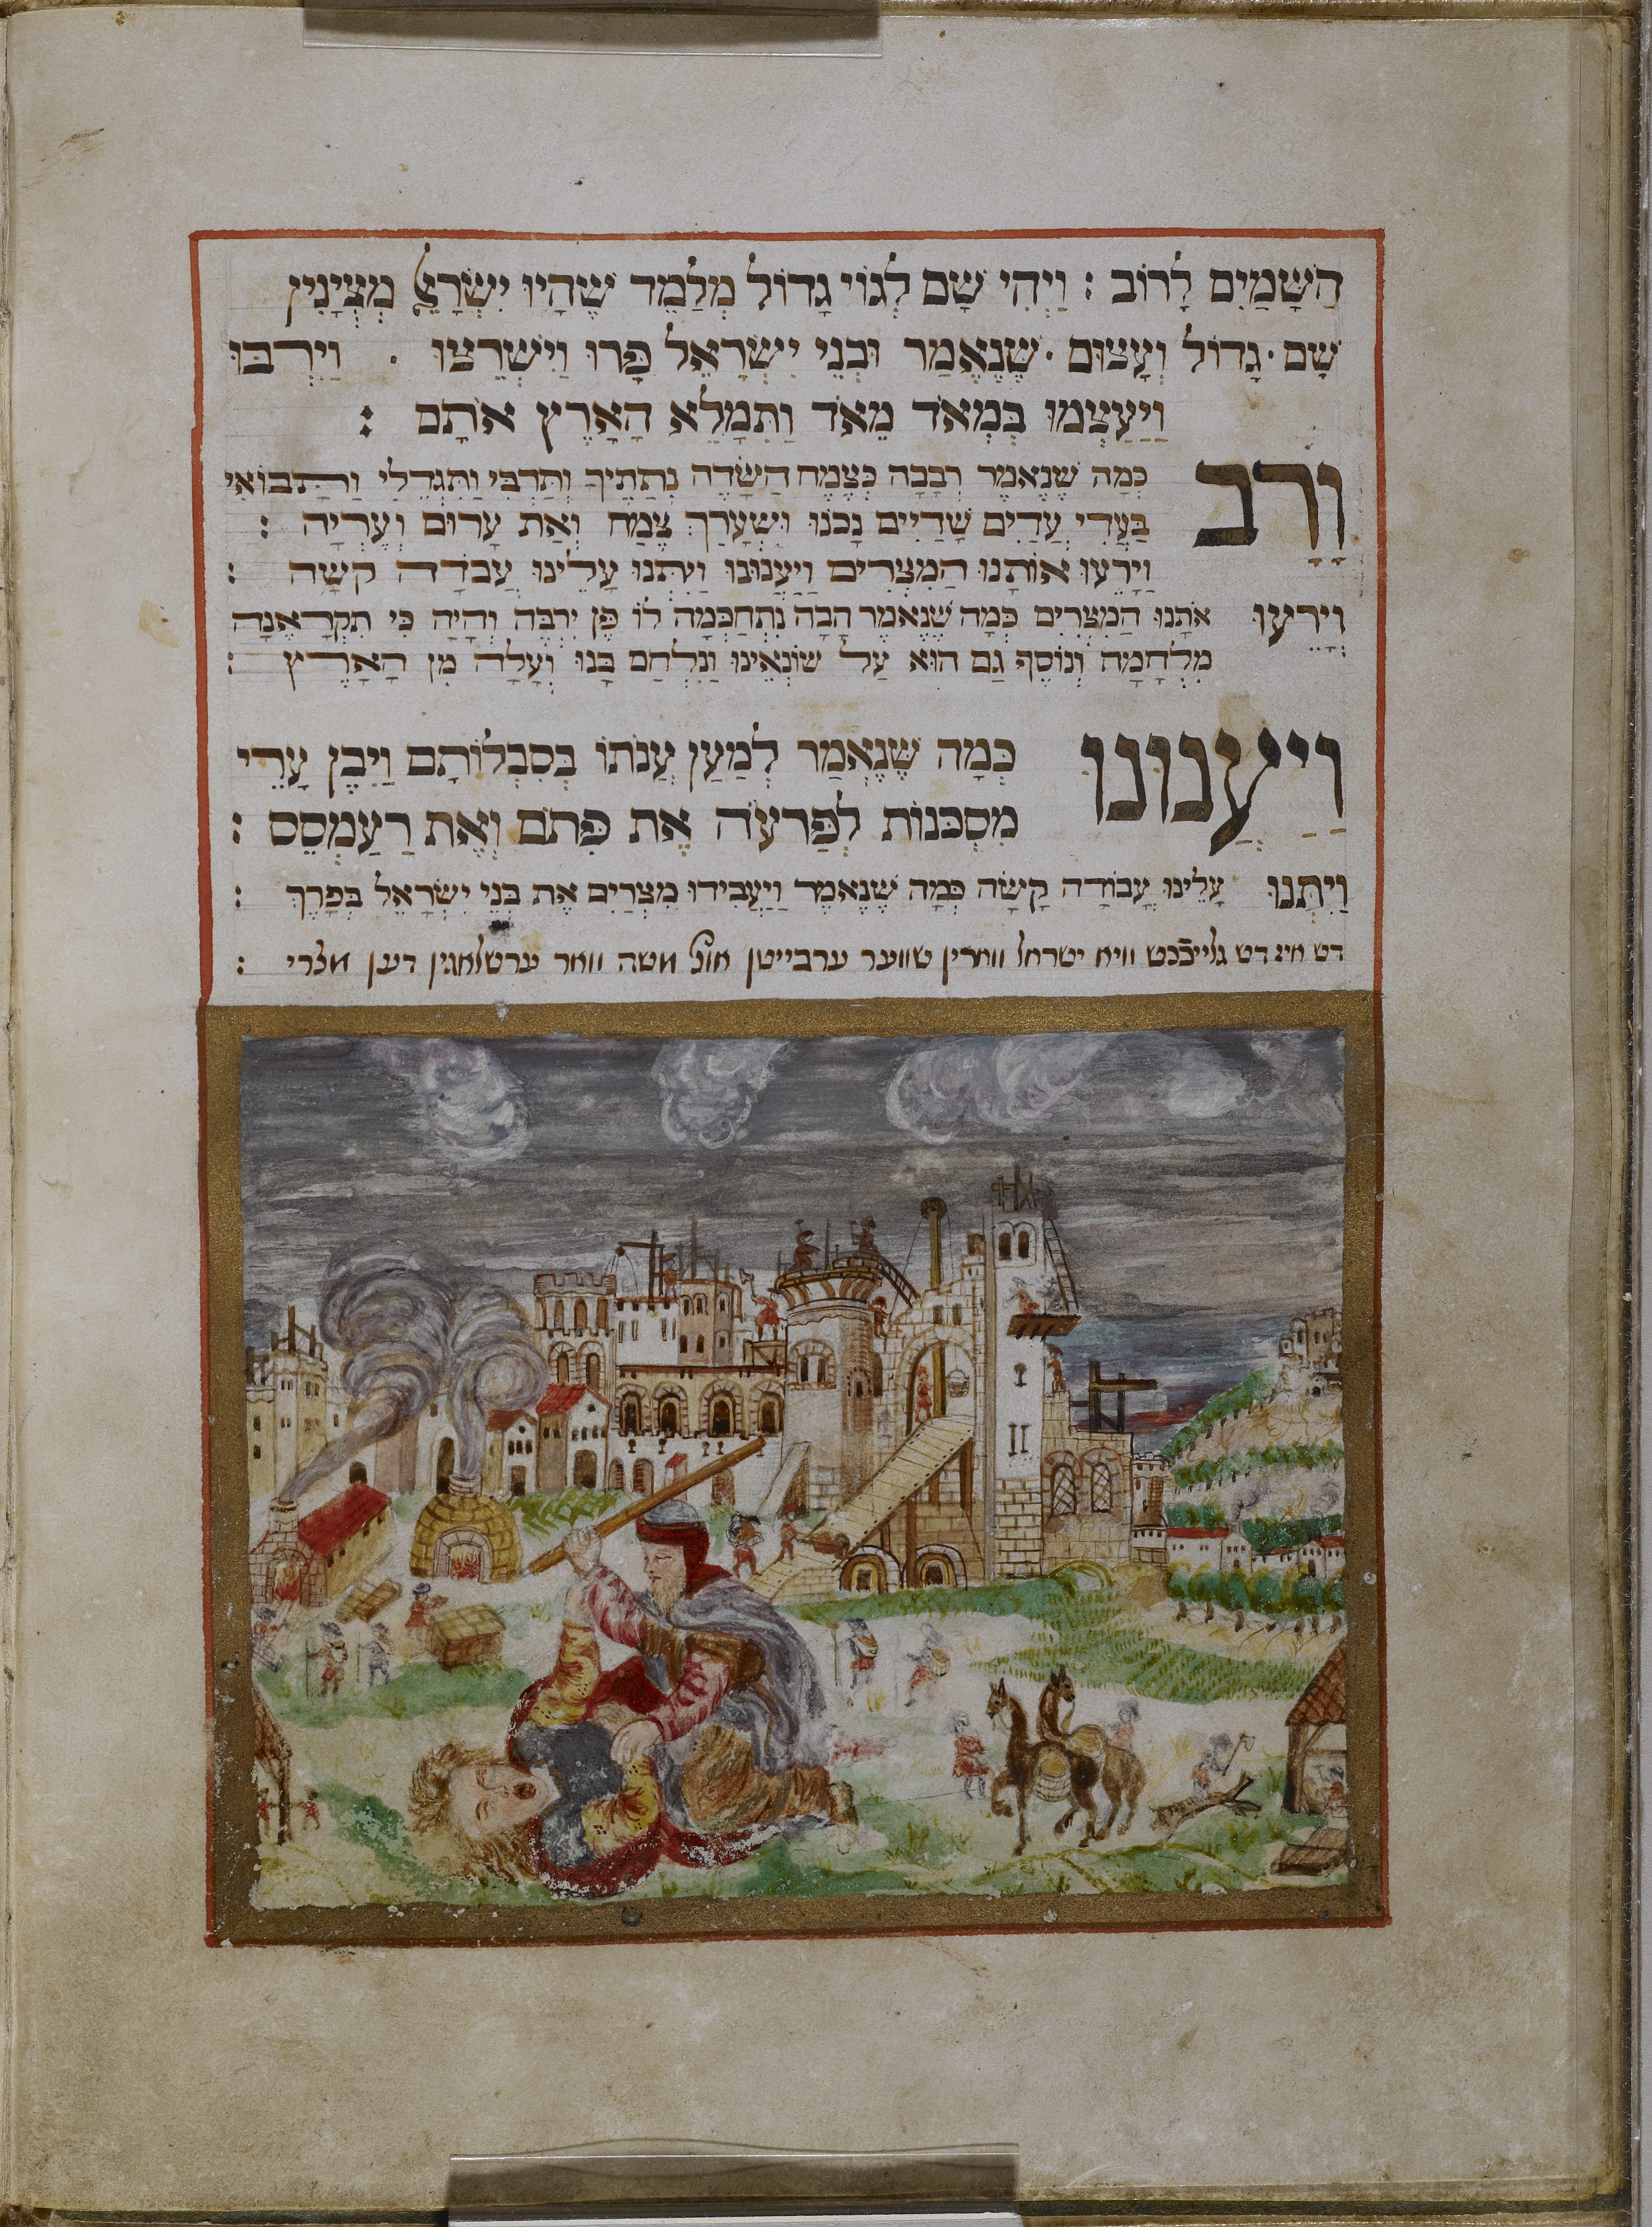 הַשָּׁמַיִם לָרוֹב : וַיְהִי שָׁם לְגוֹי גָדוֹל מְלַמֵּד שֶׁהָיוּ יִשְׂרָאֵל מְצֻיָּנִין
שָׁם · גָדוֹל וְעָצוּם · שֶׁנֶּאֱמַר וּבְנֵי יִשְׂרָאֵל פָּרוּ וַיִּשְׁרְצוּ · וַיִּרְבּוּ
וַיַּעַצְמוּ בִּמְאֹד מְאֹד וַתִּמָּלֵא הָאָרֶץ אֹתָם :
וָרָב כְּמָה שֶׁנֶּאֱמַר רְבָבָה כְּצֶמַח הַשָּׂדֶה נְתַתִּיךְ וַתִּרְבִּי וַתִּגְדְּלִי וַתָּבוֹאִי
בַּעֲדִי עֲדָיִים שָׁדַיִים נָכֹנוּ וּשְׂעָרֵךְ צִמֵּחַ וְאַתְּ עָרוֹם וְעֶרְיָה :
וַיָּרֵעוּ אוֹתָנוּ הַמִּצְרִים וַיְעַנּוּנוּ וַיִּתְּנוּ עָלֵינוּ עֲבֹדָה קָשָׁה :
וַיָּרֵעוּ אֹתָנוּ הַמִּצְרִים כְּמָה שֶׁנֶּאֱמַר הָבָה נִתְחַכְּמָה לוֹ פֶּן יִרְבֶּה וְהָיָה כִּי תִקְרֶאנָה
מִלְחָמָה וְנוֹסַף גַּם הוּא עַל שׂוֹנְאֵינוּ וְנִלְחַם בָּנוּ וְעָלָה מִן הָאָרֶץ :
וַיְעַנּוּנוּ כְּמָה שֶׁנֶּאֱמַר לְמַעַן עַנֹּתוֹ בְּסִבְלוֹתָם וַיִּבֶן עָרֵי
מִסְכְּנוֹת לְפַרְעֹה אֶת פִּתֹם וְאֶת רַעַמְסֵס :
וַיִּתְּנוּ עָלֵינוּ עֲבוֹדָה קָשָׁה כְּמָה שֶׁנֶּאֱמַר וַיַּעֲבִידוּ מִצְרַיִם אֶת בְּנֵי יִשְׂרָאֵל בְּפָרֶךְ :
דש אינ דש גלייכֿכט וויא ישראל ווארין שווער ערבייטן אונ' משה וואר ערשלאגין דען מצרי :